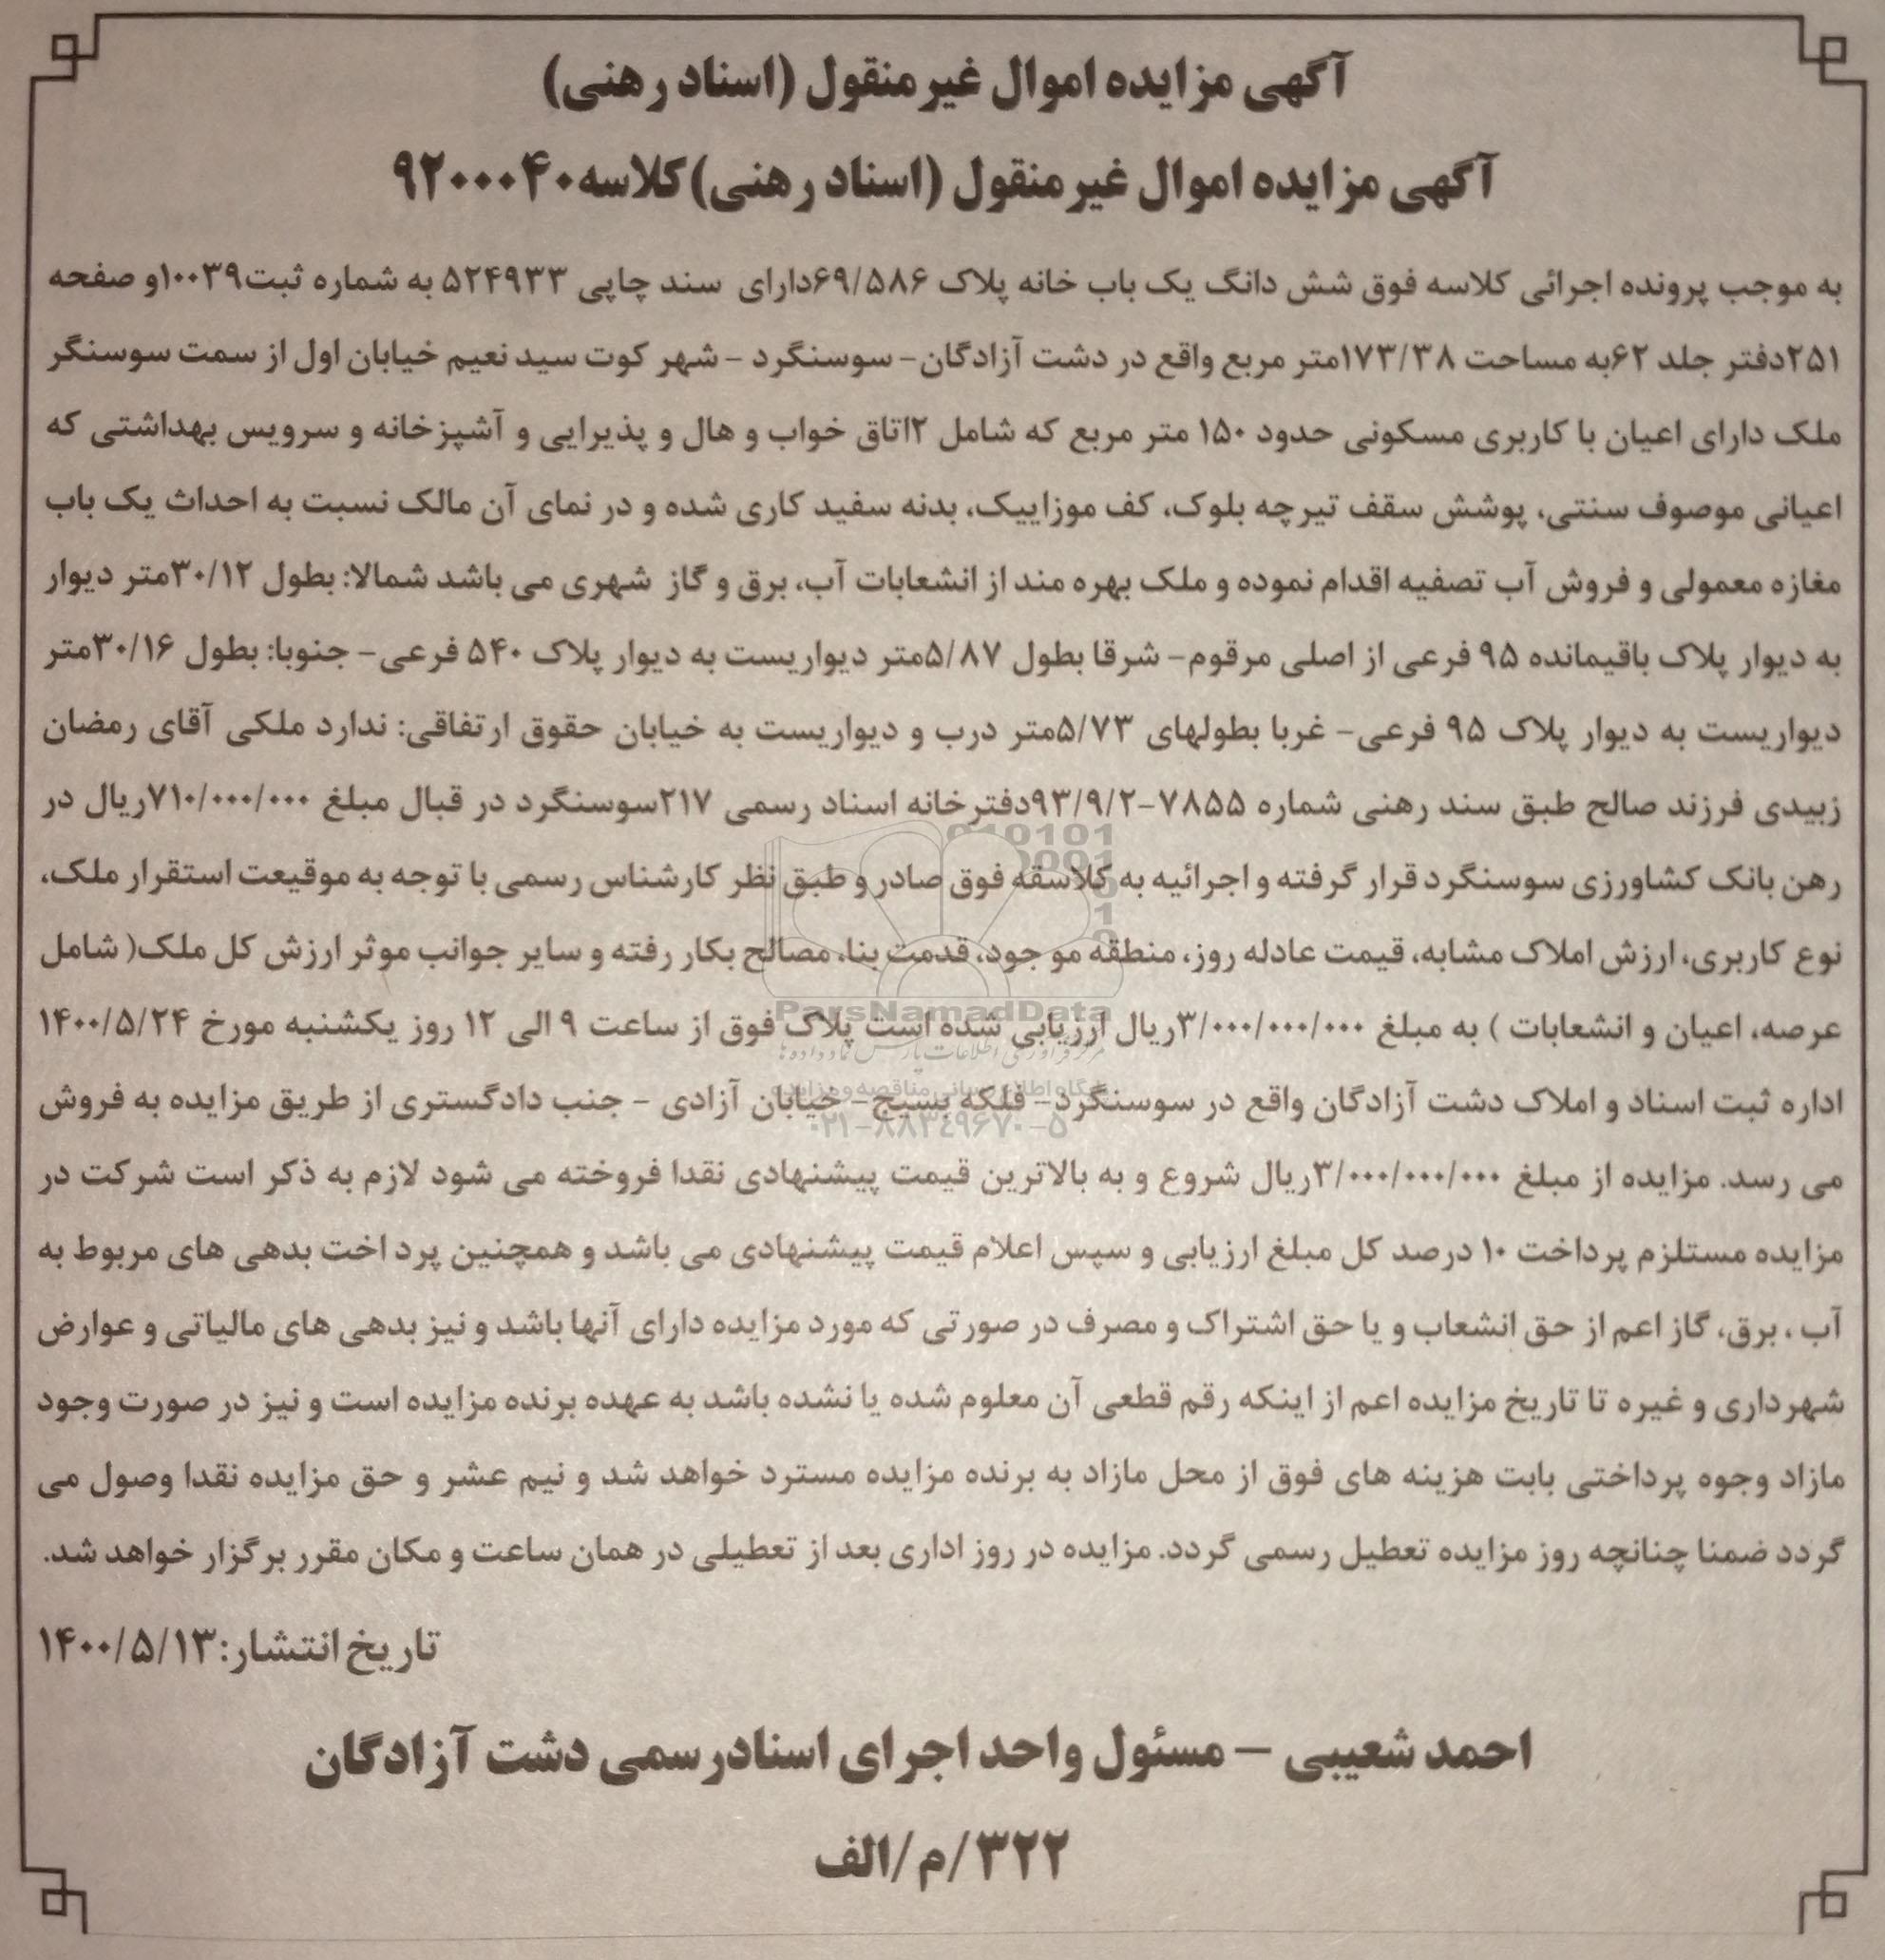 آگهی مزایده اموال غیرمنقول (اسناد رهنی)
آگهی مزایده اموال غیرمنقول (اسناد رهنی)کلاسه۹۲۰۰۰۴۰
به موجب پرونده اجرائی کلاسه فوق شش دانگ یک باب خانه پلاک ۶۹/۵۸۶دارای سند چاپی ۵۲۴۹۳۳ به شماره ثبت۱۰۰۳۹و صفحه
۲۵۱دفتر جلد ۶۲به مساحت ۱۷۳/۳۸متر مربع واقع در دشت آزادگان- سوسنگرد - شهر کوت سید نعیم خیابان اول از سمت سوسنگر
ملک دارای اعیان با کاربری مسکونی حدود ۱۵۰ متر مربع که شامل ۲اتاق خواب و هال و پذیرایی و آشپزخانه و سرویس بهداشتی که
اعیانی موصوف سنتی، پوشش سقف تیرچه بلوک، کف موزاییک، بدنه سفید کاری شده و در نمای آن مالک نسبت به احداث یک باب
مغازه معمولی و فروش آب تصفیه اقدام نموده و ملک بهره مند از انشعابات آب، برق و گاز شهری می باشد شمالا: بطول ۳۰/۱۲متر دیوار
به دیوار پلاک باقیمانده ۹۵ فرعی از اصلی مرقوم- شرقا بطول ۵/۸۷متر دیواریست به دیوار پلاک ۵۴۰ فرعی- جنوبا: بطول ۳۰/۱۶متر
دیواریست به دیوار پلاک ۹۵ فرعی- غربا بطولهای ۵/۷۳متر درب و دیواریست به خیابان حقوق ارتفاقی: ندارد ملکی آقای رمضان
زبیدی فرزند صالح طبق سند رهنی شماره ۷۸۵۵-۹۳/۹/۲دفترخانه اسناد رسمی ۲۱۷سوسنگرد در قبال مبلغ ۷۱۰/۰۰۰/۰۰۰ریال در
رهن بانک کشاورزی سوسنگرد قرار گرفته و اجرائیه به کلاسقه فوق صادر و طبق نظر کارشناس رسمی با توجه به موقیعت استقرار ملک،
نوع کاربری، ارزش املاک مشابه، قیمت عادله روز، منطقه مو جود، قدمت بنا، مصالح بکار رفته و سایر جوانب موثر ارزش کل ملک( شامل
عرصه، اعیان و انشعابات ) به مبلغ ۳/۰۰۰/۰۰۰/۰۰۰ریال ارزیابی شده است پلاک فوق از ساعت ۹ الی ۱۲ روز یکشنبه مورخ ۱۴۰۰/۵/۲۴
اداره ثبت اسناد و املاک دشت آزادگان واقع در سوسنگرد- فلکه بسیج- خیابان آزادی - جنب دادگستری از طریق مزایده به فروش
می رسد. مزایده از مبلغ ۳/۰۰۰/۰۰۰/۰۰۰ریال شروع و به بالاترین قیمت پیشنهادی نقدا فروخته می شود لازم به ذکر است شرکت در
مزایده مستلزم پرداخت ۱۰ درصد کل مبلغ ارزیابی و سپس اعلام قیمت پیشنهادی می باشد و همچنین پرد اخت بدهی های مربوط به
آب ، برق، گاز اعم از حق انشعاب و یا حق اشتراک و مصرف در صورتی که مورد مزایده دارای آنها باشد و نیز بدهی های مالیاتی و عوارض
شهرداری و غیره تا تاریخ مزایده اعم از اینکه رقم قطعی آن معلوم شده یا نشده باشد به عهده برنده مزایده است و نیز در صورت وجود
مازاد وجوه پرداختی بابت هزینه های فوق از محل مازاد به برنده مزایده مسترد خواهد شد و نیم عشر و حق مزایده نقدا وصول می
گردد ضمنا چنانچه روز مزایده تعطیل رسمی گردد. مزایده در روز اداری بعد از تعطیلی در همان ساعت و مکان مقرر برگزار خواهد شد.
تاریخ انتشار:۱۴۰۰/۵/۱۳
احمد شعیبی - مسئول واحد اجرای اسنادرسمی دشت آزادگان
۳۲۲/م/الف
ParsNamadData
مرکز فرآوری اطلاعات پارس نماد داده ها
پایگاه اطلاع رسانی مناقصه و مزایده
۰۲۱-۸۸۳۴۹۶۷۰-۵